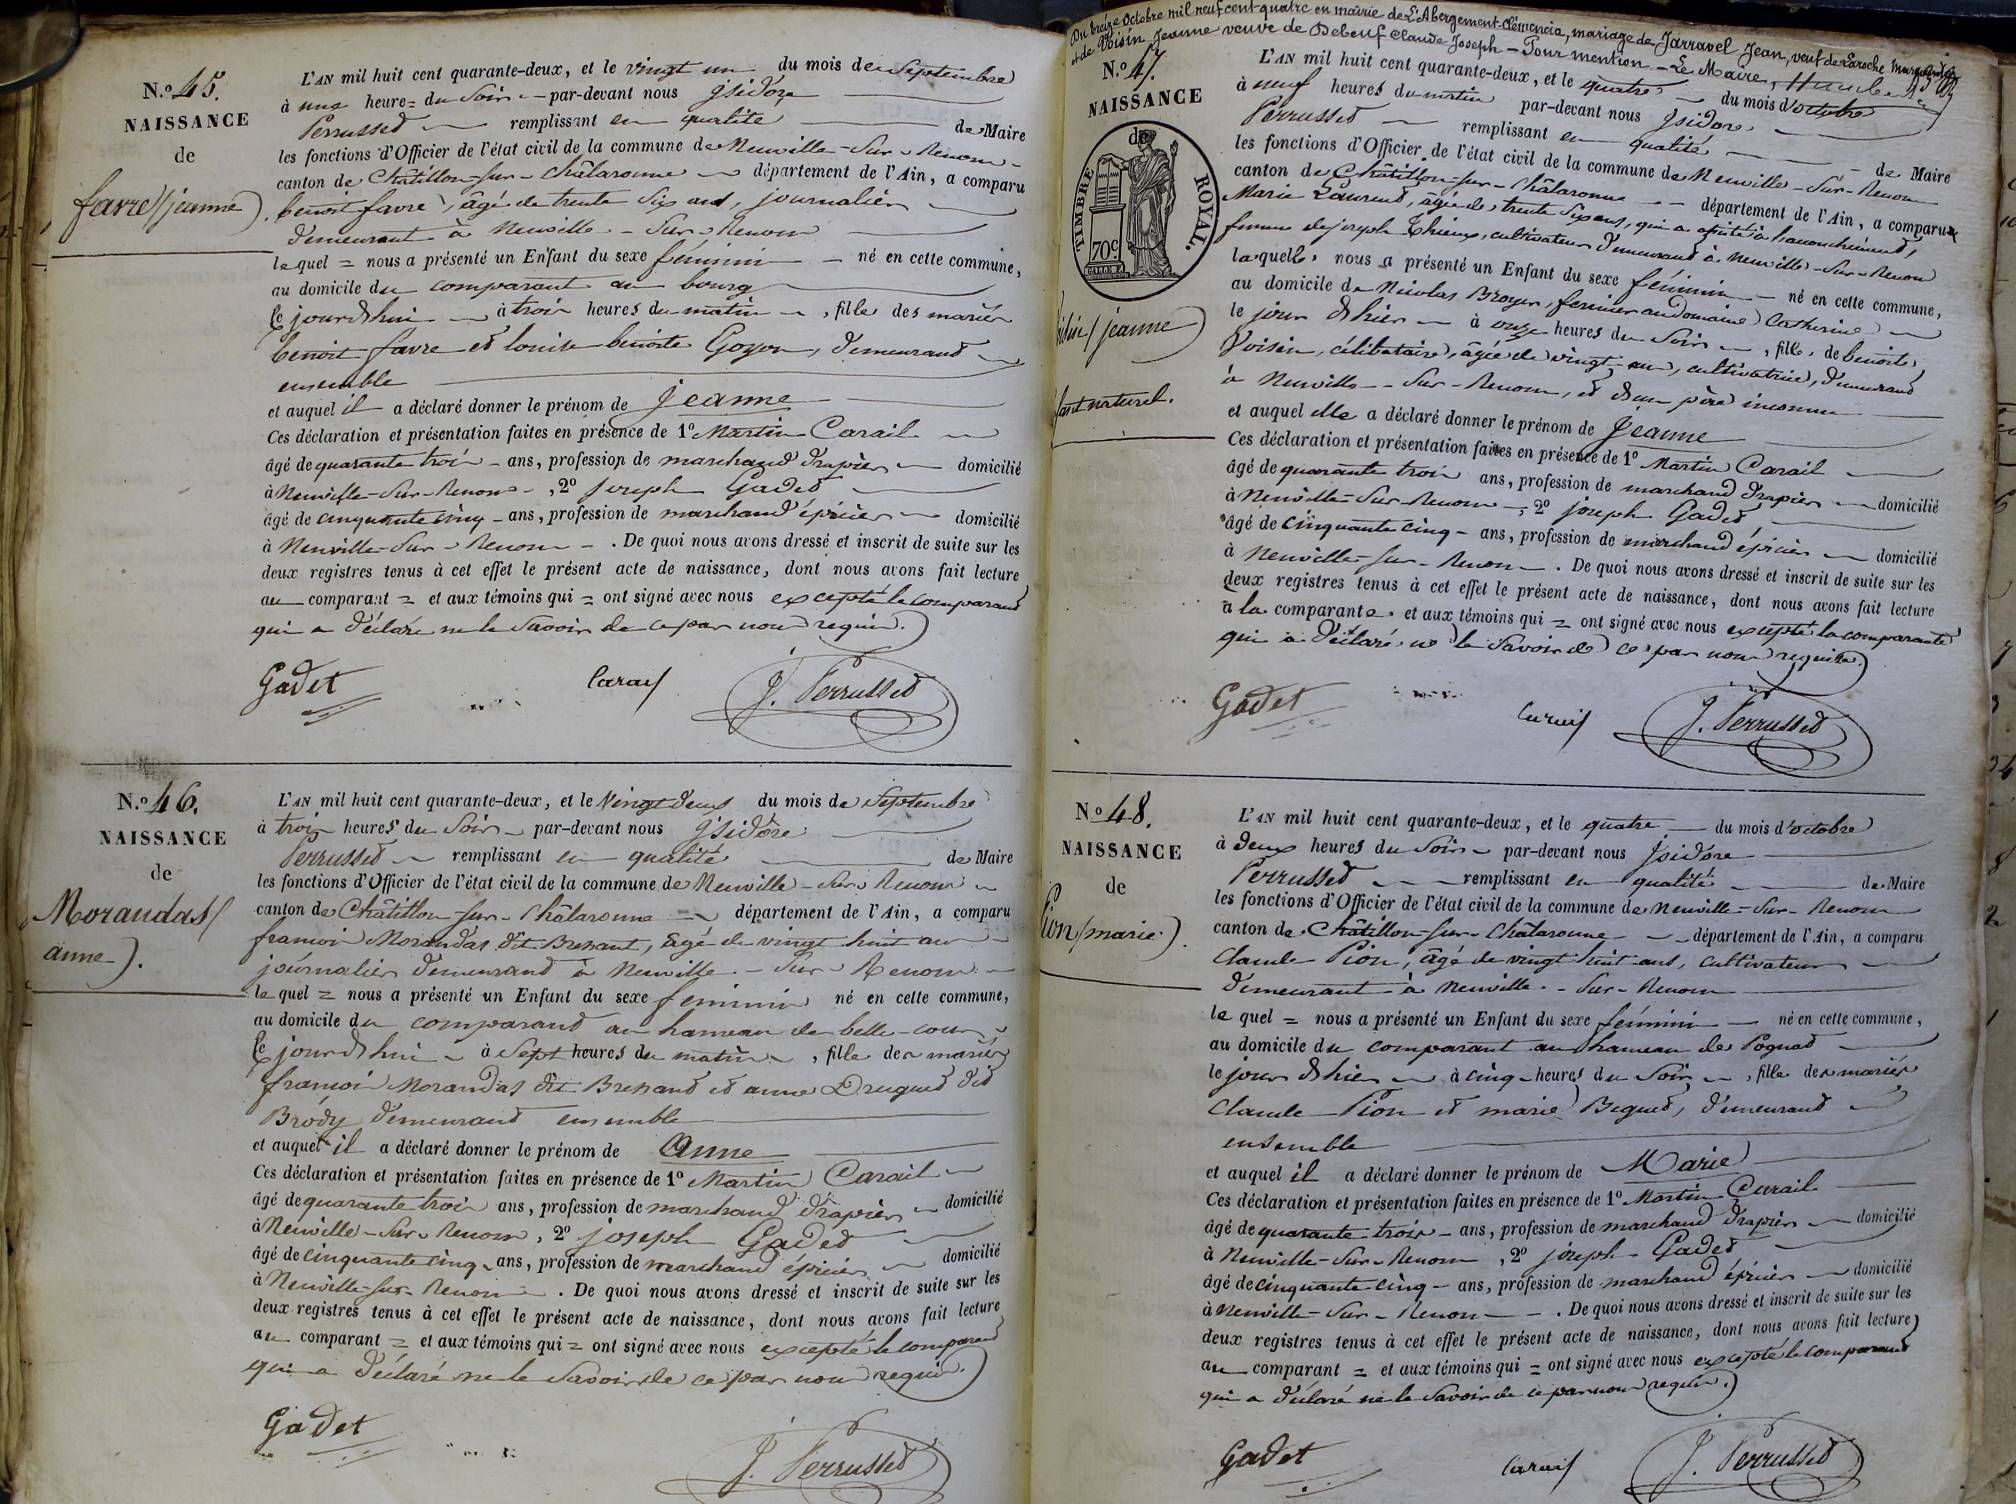 N.º 45.
NAISSANCE
de
favre (jeanne).
L'AN mil huit cent quarante-deux, et le vingt un du mois de Septembre
à une heure = du Soir par-devant nous jsidore
Perrussed remplissant en qualité de Maire
les fonctions d'Officier de l'état civil de la commune de Neuville-Sur-Renom
canton de Châtillon-sur-Châlaronne département de l'Ain, a comparu
benoit favre, âgé de trente Six ans, journalier
demeurant à Neuville-Sur-Renom
le quel = nous a présenté un Enfant du sexe féminin né en cette commune,
au domicile du comparant au bourg
le jourd'hui à trois heures du matin, fille des mariés
benoit favre et louise benoite Goyon, demeurand
ensemble
et auquel il a déclaré donner le prénom de jeanne
Ces déclaration et présentation faites en présence de 1º Martin Carail
âgé de quarante trois ans, profession de marchand drapier domicilié
à Neuville-Sur-Renom, 2º joseph Gaded
âgé de cinquante cinq ans, profession de marchand épicier domicilié
à Neuville-Sur-Renom. De quoi nous avons dressé et inscrit de suite sur les
deux registres tenus à cet effet le présent acte de naissance, dont nous avons fait lecture
au comparant = et aux témoins qui = ont signé avec nous excepté le comparand
qui a déclaré ne le Savoir de ce par nous requis.
Gadet Carail J. Perrussed
N.º 46.
NAISSANCE
de
Morandas (
anne).
L'AN mil huit cent quarante-deux, et le Vingt deux du mois de Septembre
à trois heures du Soir par-devant nous jsidore
Perrussed remplissant en qualité de Maire
les fonctions d'Officier de l'état civil de la commune de Neuville-Sur-Renom
canton de Châtillon-sur-Châlaronne département de l'Ain, a comparu
francois Morandas dit Bressant, âgé de vingt huit ans
journalier demeurand à Neuville-Sur-Renom
le quel = nous a présenté un Enfant du sexe féminin né en cette commune,
au domicile du comparand au hameau de belle-cour
le jourd'hui à Sept heures du matin, fille des mariés
francois Morandas dit Bressand et anne Drugued dit
Brody demeurand ensemble
et auquel il a déclaré donner le prénom de Anne
Ces déclaration et présentation faites en présence de 1º Martin Carail
âgé de quarante trois ans, profession de marchand drapier domicilié
à Neuville-Sur-Renom, 2º joseph Gaded
âgé de cinquante cinq ans, profession de marchand épicier domicilié
à Neuville-sur-Renom. De quoi nous avons dressé et inscrit de suite sur les
deux registres tenus à cet effet le présent acte de naissance, dont nous avons fait lecture
au comparant = et aux témoins qui = ont signé avec nous excepté le comparand
qui a déclaré ne le Savoir de ce par nous requis.
Gadet J. Perrussed
Du treize Octobre mil neuf cent quatre en mairie de L'Abergement-Clémencia, mariage de Jarravel Jean, veuf de Laroche
et de Voisin Jeanne veuve de Debeuf Claude Joseph - Pour mention - Le Maire,
N.º 47.
NAISSANCE
de
TIMBRE ROYAL.
70c
jeanne)
naturel.
L'AN mil huit cent quarante-deux, et le quatre du mois d'octobre
à neuf heures du matin par-devant nous jsidore
Perrussed remplissant en qualité de Maire
les fonctions d'Officier de l'état civil de la commune de Neuville-Sur-Renom
canton de Châtillon-sur-Châlaronne département de l'Ain, a comparu
Marie Laurend, âgée de trente Six ans, qui a assisté à l'accouchement,
femme de joseph Thieux, cultivateur demeurand à Neuville-Sur-Renom
laquelle nous a présenté un Enfant du sexe féminin né en cette commune,
au domicile de Nicolas Broyer, fermier au domaine Catherine
le jour d'hier à onze heures du Soir, fille de benoite
Voisin, célibataire, âgée de vingt ans, cultivatrice, demeurand
à Neuville-Sur-Renom, et d'un père inconnu
et auquel elle a déclaré donner le prénom de jeanne
Ces déclaration et présentation faites en présence de 1º Martin Carail
âgé de quarante trois ans, profession de marchand drapier domicilié
à Neuville-Sur-Renom, 2º joseph Gaded
âgé de cinquante cinq ans, profession de marchand épicier domicilié
à Neuville-sur-Renom. De quoi nous avons dressé et inscrit de suite sur les
deux registres tenus à cet effet le présent acte de naissance, dont nous avons fait lecture
à la comparante et aux témoins qui = ont signé avec nous excepté la comparante
qui a déclaré ne le Savoir de ce par nous requise.
Gadet Carail J. Perrussed
Nº 48.
NAISSANCE
de
Pion (marie).
L'AN mil huit cent quarante-deux, et le quatre du mois d'octobre
à deux heures du Soir par-devant nous jsidore
Perrussed remplissant en qualité de Maire
les fonctions d'Officier de l'état civil de la commune de Neuville-Sur-Renom
canton de Châtillon-sur-Châlaronne département de l'Ain, a comparu
Claude Pion, âgé de vingt huit ans, cultivateur
demeurant à Neuville-Sur-Renom
le quel = nous a présenté un Enfant du sexe féminin né en cette commune,
au domicile du comparant au hameau de Pognad
le jour d'hier à cinq heures du Soir, fille des mariés
Claude Pion et marie Begued, demeurand
ensemble
et auquel il a déclaré donner le prénom de Marie
Ces déclaration et présentation faites en présence de 1º Martin Carail
âgé de quarante trois ans, profession de marchand drapier domicilié
à Neuville-Sur-Renom, 2º joseph Gaded
âgé de cinquante cinq ans, profession de marchand épicier domicilié
à Neuville-Sur-Renom. De quoi nous avons dressé et inscrit de suite sur les
deux registres tenus à cet effet le présent acte de naissance, dont nous avons fait lecture
au comparant = et aux témoins qui = ont signé avec nous excepté le comparand
qui a déclaré ne le Savoir de ce par nous requis.
Gadet Carail J. Perrussed